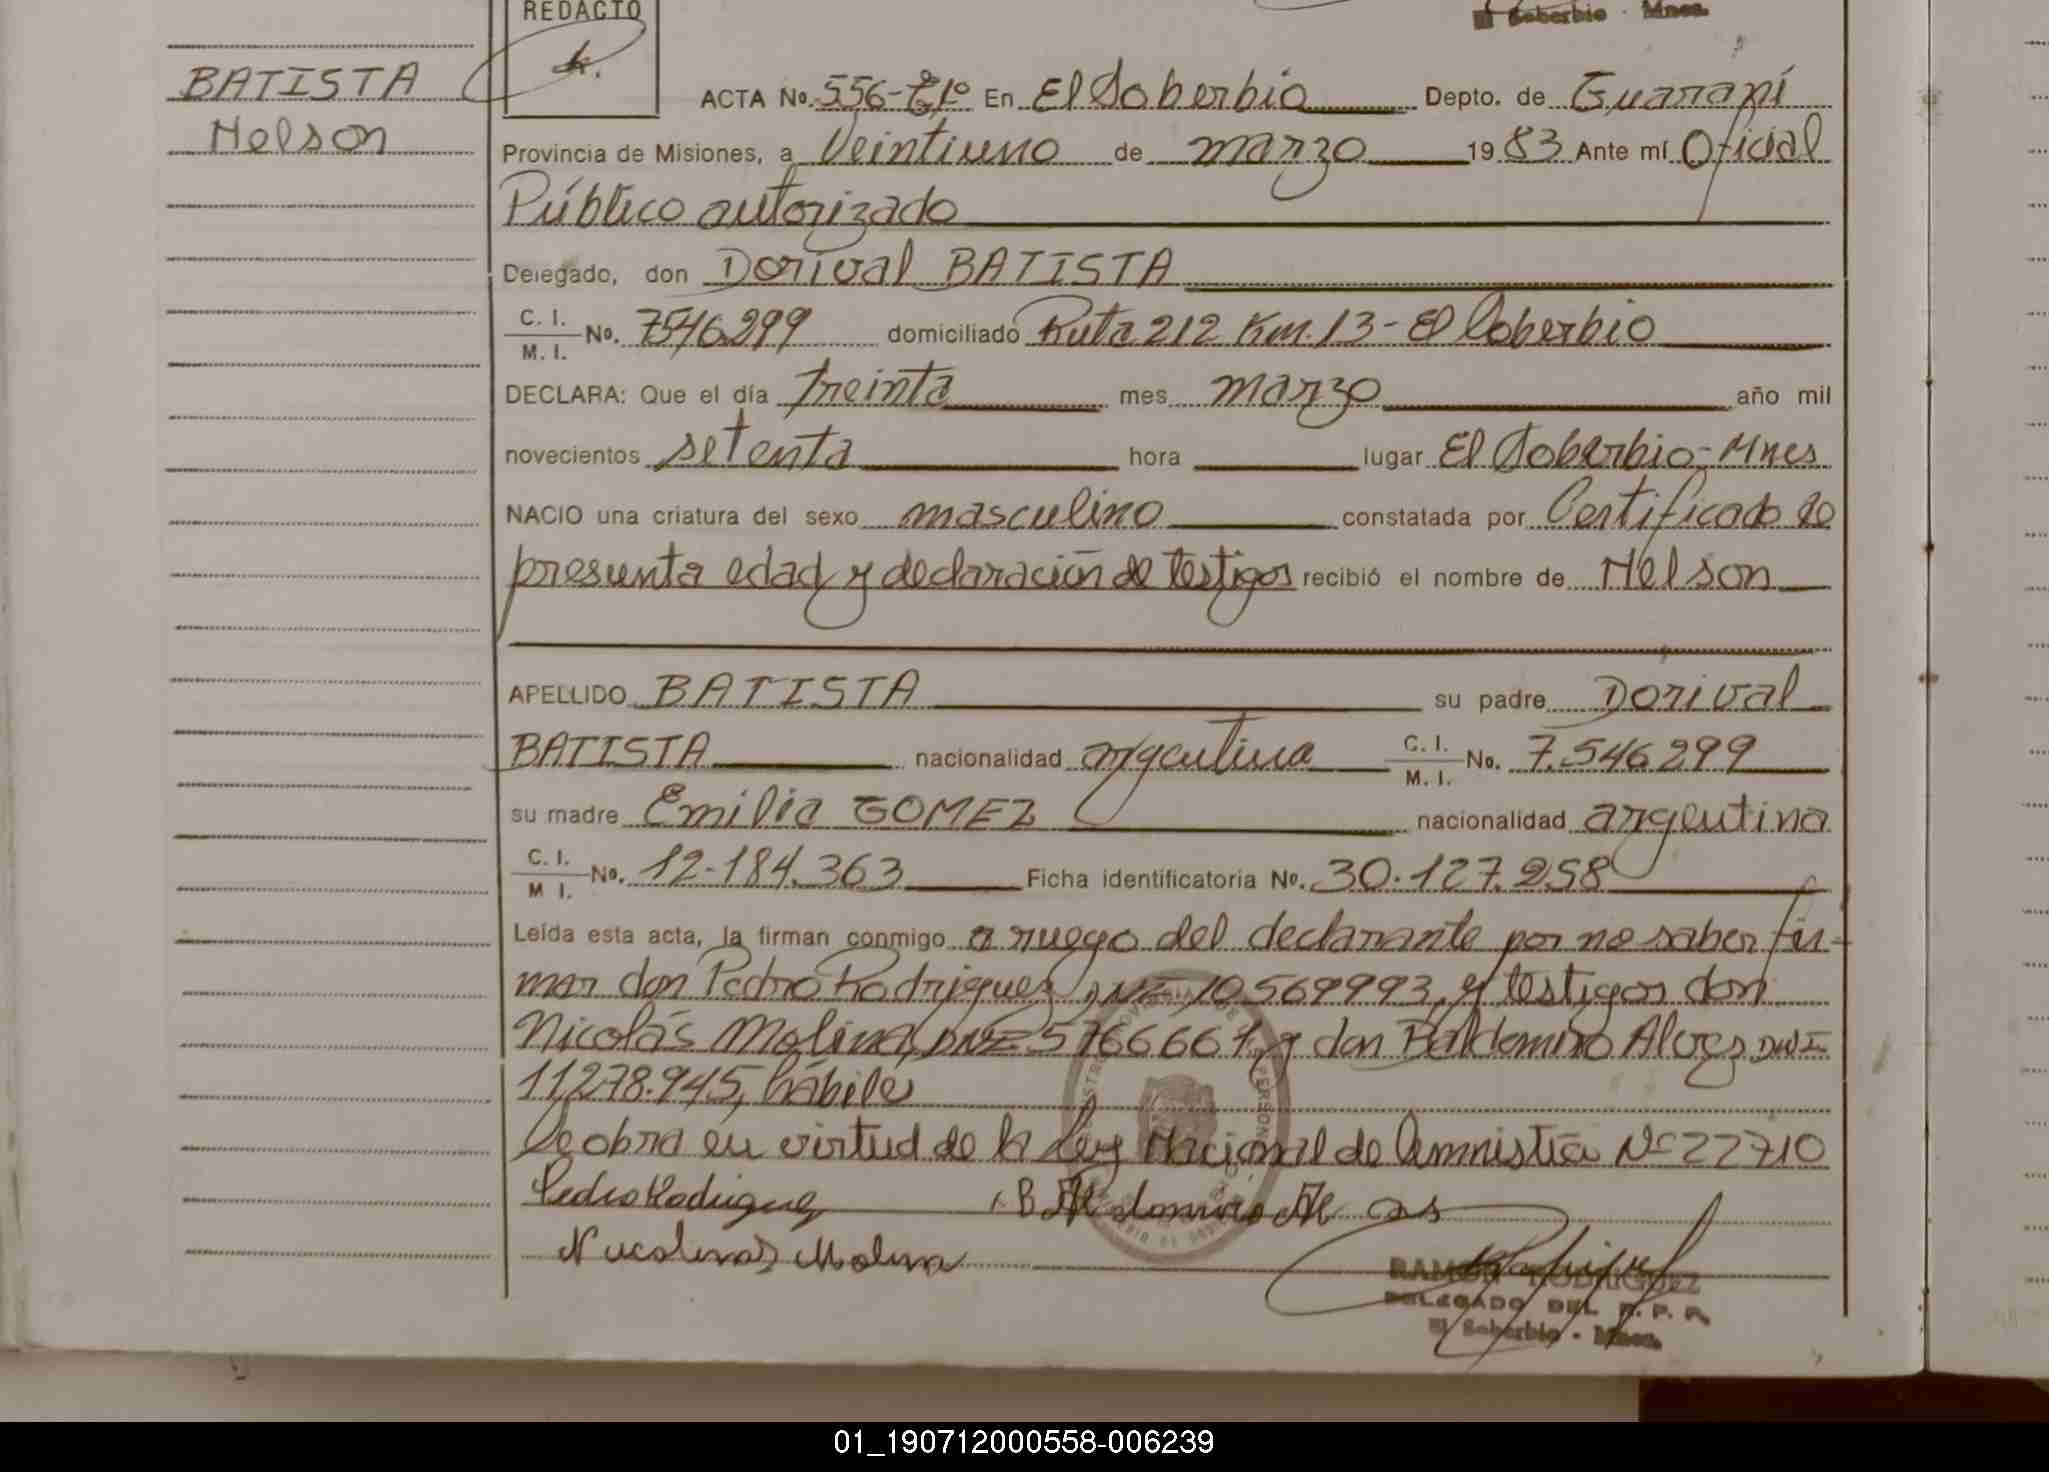 REDACTO
El Soberbio - Mnes.
BATISTA
Nelson
ACTA No. 556-T.1º En El Soberbio Depto. de Guaraní
Provincia de Misiones, a Veintiuno de marzo 1983 Ante mí Oficial
Público autorizado
Delegado, don Dorival BATISTA
C. I. / M. I. No. 7546299 domiciliado Ruta 212 Km. 13 - El Soberbio
DECLARA: Que el día treinta mes marzo año mil
novecientos setenta hora lugar El Soberbio - Mnes
NACIO una criatura del sexo masculino constatada por Certificado de
presunta edad y declaración de testigos recibió el nombre de Nelson
APELLIDO BATISTA su padre Dorival
BATISTA nacionalidad argentina C. I. / M. I. No. 7.546.299
su madre Emilia GOMEZ nacionalidad argentina
C. I. / M I. No. 12.184.363 Ficha identificatoria No. 30.127.258
Leída esta acta, la firman conmigo a ruego del declarante por no saber fir-
mar don Pedro Rodriguez, DNI 10569993, y testigos don
Nicolás Molina, DNI 5766667, y don Baldomiro Alves DNI
11.278.945, hábiles
Se obra en virtud de la Ley Nacional de Amnistía Nº 22710
Pedro Rodriguez
RAMON RODRIGUEZ
DELEGADO DEL R. P. P.
El Soberbio - Mnes.
01_190712000558-006239